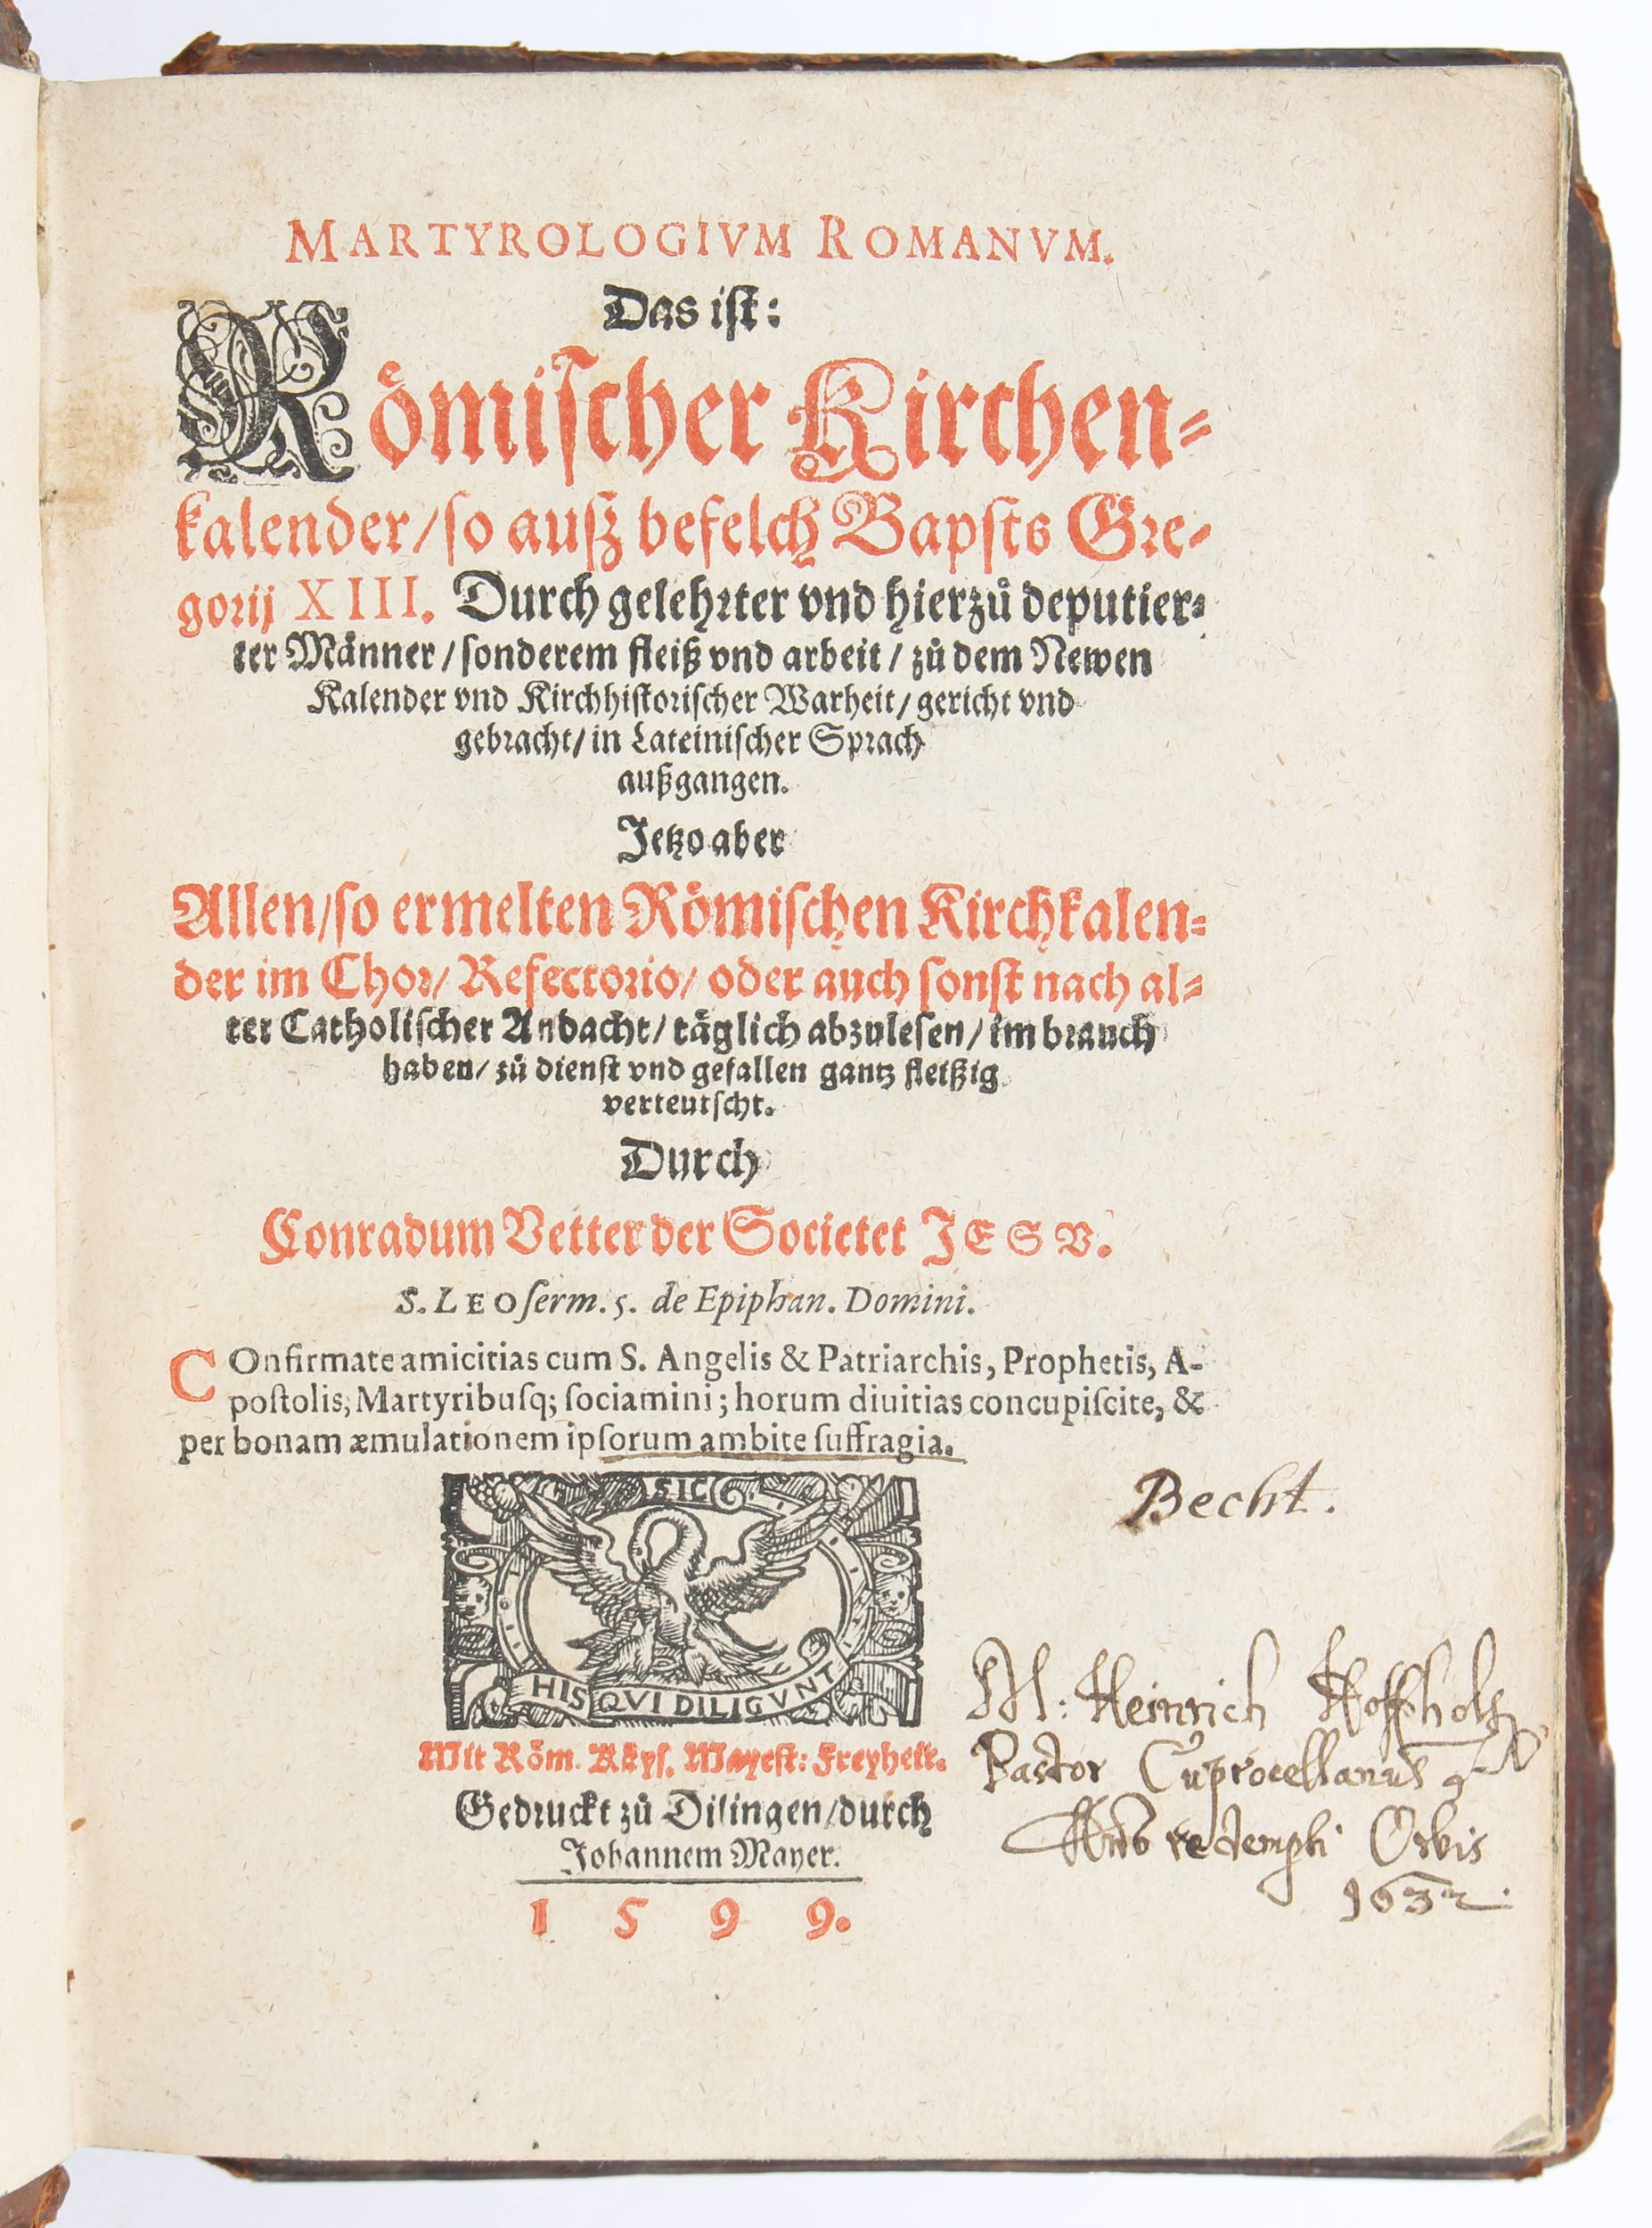 MARTYROLOGIVM ROMANVM.
Das ist:
Römischer Kirchen-
kalender/so auß befelch Bapsts Gre-
gorij XIII. Durch gelehrter vnd hierzů deputier-
ter Männer/sonderem fleiß vnd arbeit/zů dem Newen
Kalender vnd Kirchhistorischer Warheit/gericht vnd
gebracht/in Lateinischer Sprach
außgangen.
Jetzo aber
Allen/so ermelten Römischen Kirchkalen-
der im Chor/Refectorio/oder auch sonst nach al-
ter Catholischer Andacht/täglich abzulesen/im brauch
haben/zů dienst vnd gefallen gantz fleißig
verteutscht.
Durch
Conradum Vetter der Societet JESV.
S. LEO serm. 5. de Epiphan. Domini.
COnfirmate amicitias cum S. Angelis & Patriarchis, Prophetis, A-
postolis, Martyribusq; sociamini; horum diuitias concupiscite, &
per bonam æmulationem ipsorum ambite suffragia.
SIC
HIS QVI DILIGVNT
Becht.
Mit Röm. Käys. Mayest: Freyheit.
Gedruckt zů Dilingen/durch
Johannem Mayer.
1599.
M: Heinrich Hoffholtz
Pastor Cuprocellanus
Año redempti Orbis
1632.